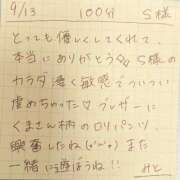 9/13 100分 S様
とっても優しくしてくれて
本当にありがとう♡ S様の
カラダ凄く敏感でついつい
虐めちゃった♡ ブレザーに
くまさん柄のロリパンツ
興奮したね(*´∀`*) また
一緒に遊ぼうね!!
みと